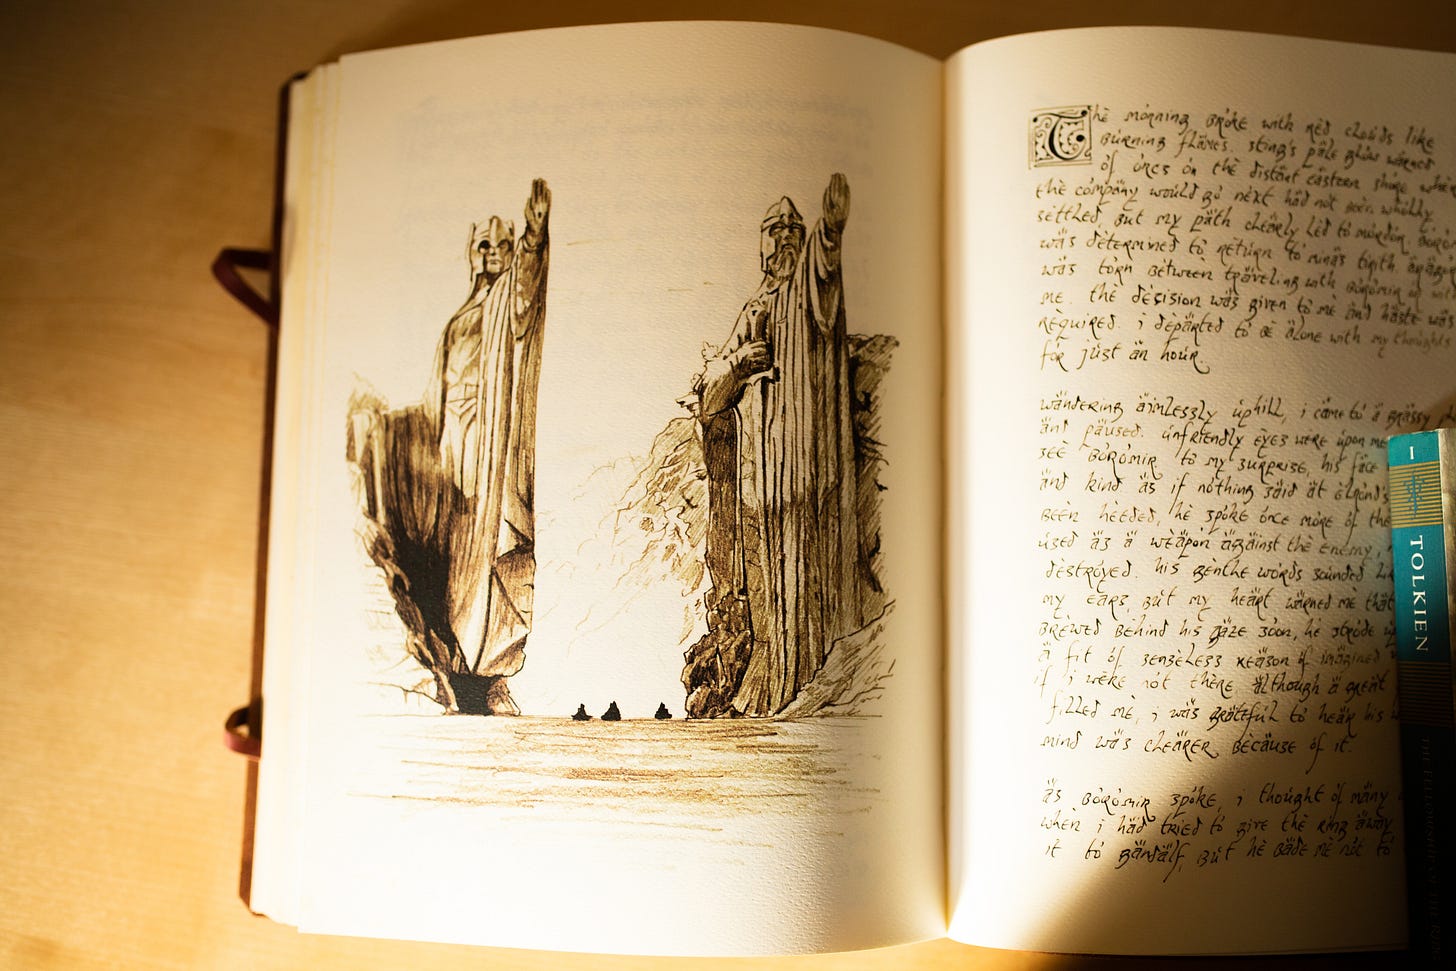 The morning broke with red clouds like
burning flames. Sting's pale glow warned
of orcs on the distant eastern shore where
the company would go next had not been wholly
settled, but my path clearly led to mordor.
was determined to return to minas tirith.
was torn between traveling with boromir or
me. the decision was given to me and haste was
required. i departed to be alone with my thoughts
for just an hour.
wandering aimlessly uphill, i came to a grassy
and paused. unfriendly eyes were upon me
see boromir to my surprise, his face
and kind as if nothing said at elrond's
been heeded, he spoke once more of the
used as a weapon against the enemy,
destroyed. his gentle words sounded
my ears, but my heart warned me that
brewed behind his gaze soon, he strode
a fit of senseless reason of imagined
if i were not there although a great
filled me, i was grateful to hear his
mind was clearer because of it.
as boromir spoke, i thought of many
when i had tried to give the ring away
it to gandalf, but he bade me not to
I
TOLKIEN
THE FELLOWSHIP OF THE RING